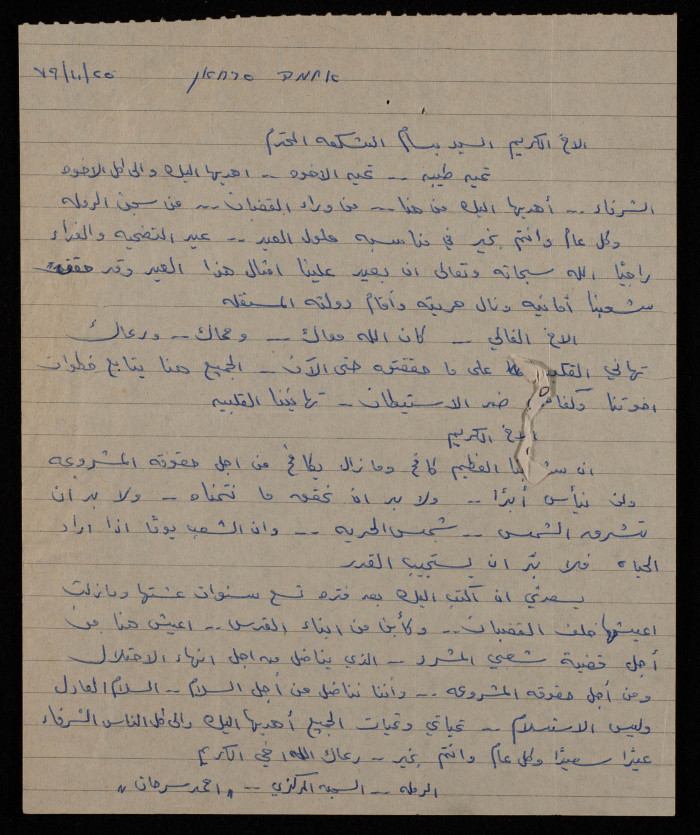 אחמד סרחאן ٧٩/١١/٢٥
الاخ الكريم السيد بسام الشكعه المحترم
تحيه طيبه .. تحيه الاخوه .. اهديها اليك والى كل الاخوه
الشرفاء .. أهديها اليك من هنا .. من وراء القضبان .. من سجن الرمله
وكل عام وانتم بخير في مناسبه حلول العيد .. عيد التضحيه والفداء
راجيًا الله سبحانه وتعالى ان يعيد علينا امثال هذا العيد وقد حقق
شعبنا أمانيه ونال حريته وأقام دولته المستقله
الاخ الغالي .. كان الله معاك .. وحماك .. ورعاك
تهاني القلبيه على ما حققتوه حتى الآن .. الجميع هنا يتابع خطوات
اخوتنا وكفاحهم ضد الاستيطان .. تهانينا القلبيه
الاخ الكريم
ان شعبنا العظيم كافح وما زال يكافح من اجل حقوقه المشروعه
ولن نيأس أبدًا .. ولا بد ان نحقق ما نتمناه .. ولا بد ان
تشرق الشمس .. شمس الحريه .. وان الشعب يومًا اذا اراد
الحياه فلا بدّ ان يستجيب القدر
يسعدني ان اكتب اليك بعد فتره تسع سنوات عشتها وما زلت
اعيشها خلف القضبان .. وكأبن من ابناء القدس .. اعيش هنا من
أجل قضية شعبي المشرد .. الذي يناضل من اجل انهاء الاحتلال
ومن أجل حقوقه المشروعه .. وأننا نناضل من أجل السلام .. السلام العادل
وليس الاستسلام .. تحياتي وتحيات الجميع أهديها اليك والى كل الناس الشرفاء
عيدًا سعيدًا وكل عام وانتم بخير .. رعاك الله اخي الكريم
الرمله .. السجن المركزي .. "احمد سرحان"